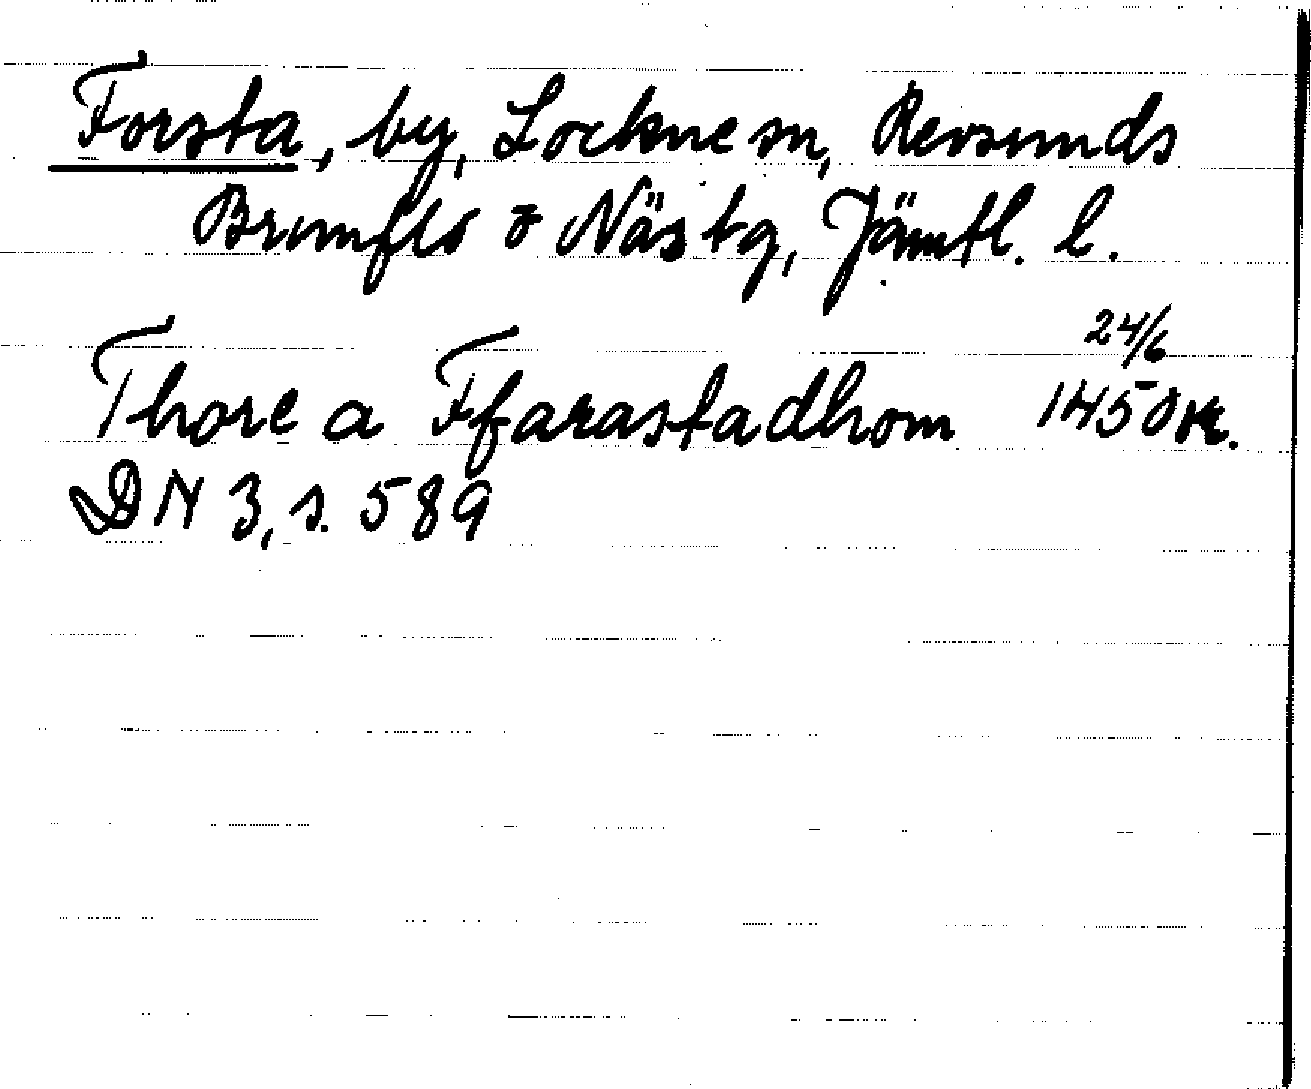 Forsta, by, Lockne sn, Revsunds
Brunflo o Näs tg, Jämtl. l.
24/6
Thore a Ffarastadhom 1450 Kr.
DN 3, s. 589